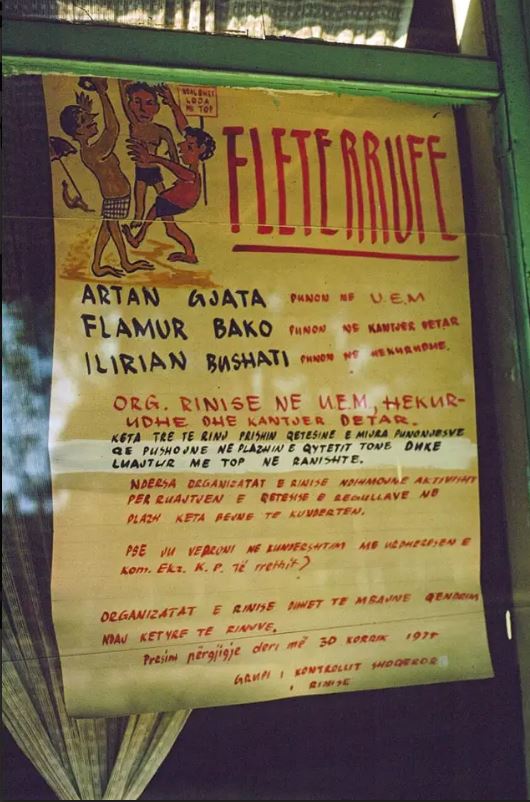 NDALOHET
LODA
ME TOP
FLETERRUFE
ARTAN GJATA PUNON NE U.E.M
FLAMUR BAKO PUNON NE KANTJER DETAR
ILIRIAN BUSHATI PUNON NE HEKURUDHE.
ORG. RINISE NE U.E.M, HEKUR-
UDHE DHE KANTJER DETAR.
KETA TRE TE RINJ PRISHIN QETESINE E MIJRA PUNONJESVE
QE PUSHOJNE NE PLAZHIN E QYTETIT TONE DUKE
LUAJTUR ME TOP NE RANISHTE.
NDERSA ORGANIZATAT E RINISE NDIHMOJNE AKTIVISHT
PER RUAJTJEN E QETESISE E RREGULLAVE NE
PLAZH KETA BEJNE TE KUNDERTEN.
PSE JU VEPRONI NE KUNDERSHTIM ME URDHERESEN E
Kom. Ekz. K. P. Të rrethit?
ORGANIZATAT E RINISE DUHET TE MBAJNE QENDRIM
NDAJ KETYRE TE RINJVE.
Presim përgjigje deri më 30 KORRIK
GRUPI I KONTROLLIT SHOQEROR
I RINISE